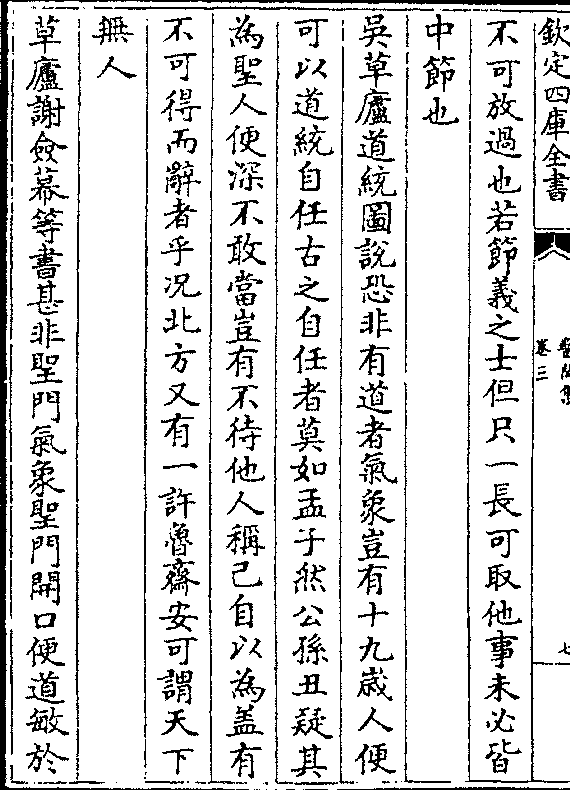 欽定四庫全書
卷三
七
不可放過也若節義之士但只一長可取他事未必皆
中節也
吳草廬道統圖說恐非有道者氣象豈有十九歲人便
可以道統自任古之自任者莫如孟子然公孫丑疑其
為聖人便深不敢當豈有不待他人稱己自以為盖有
不可得而辭者乎况北方又有一許魯齋安可謂天下
無人
草廬謝僉幕等書甚非聖門氣象聖門開口便道敏於